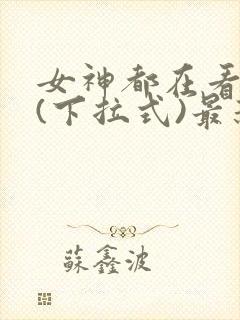 女神都在看
(下拉式)最
蘇鑫波